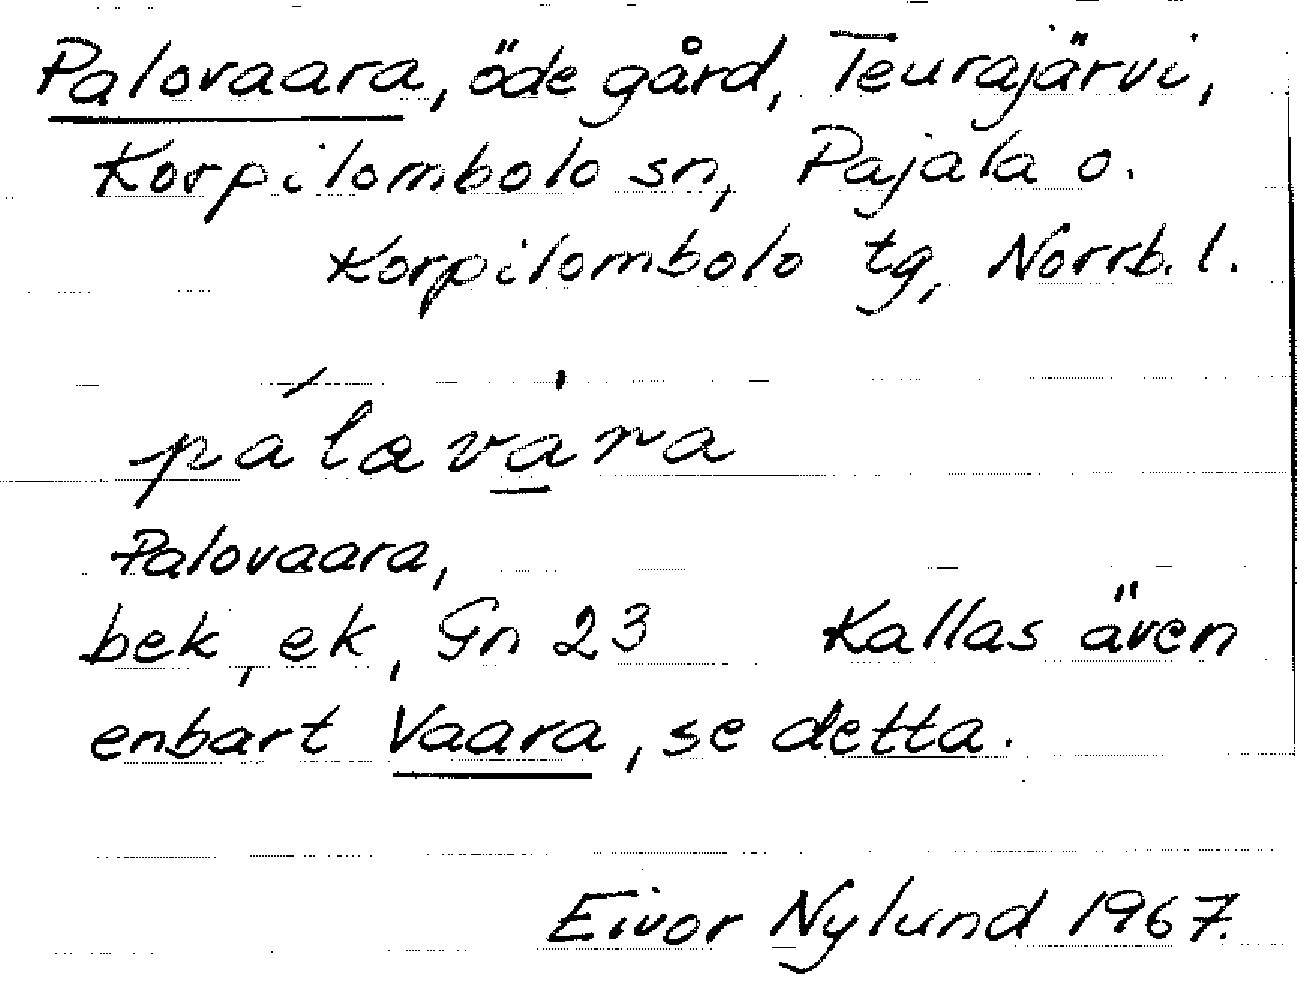 Palovaara, öde gård, Teurajärvi,
Korpilombolo sn, Pajala o.
Korpilombolo tg, Norrb. l.
pálavàra
Palovaara,
bek, ek, Gn 23 Kallas även
enbart Vaara, se detta.
Eivor Nylund 1967.